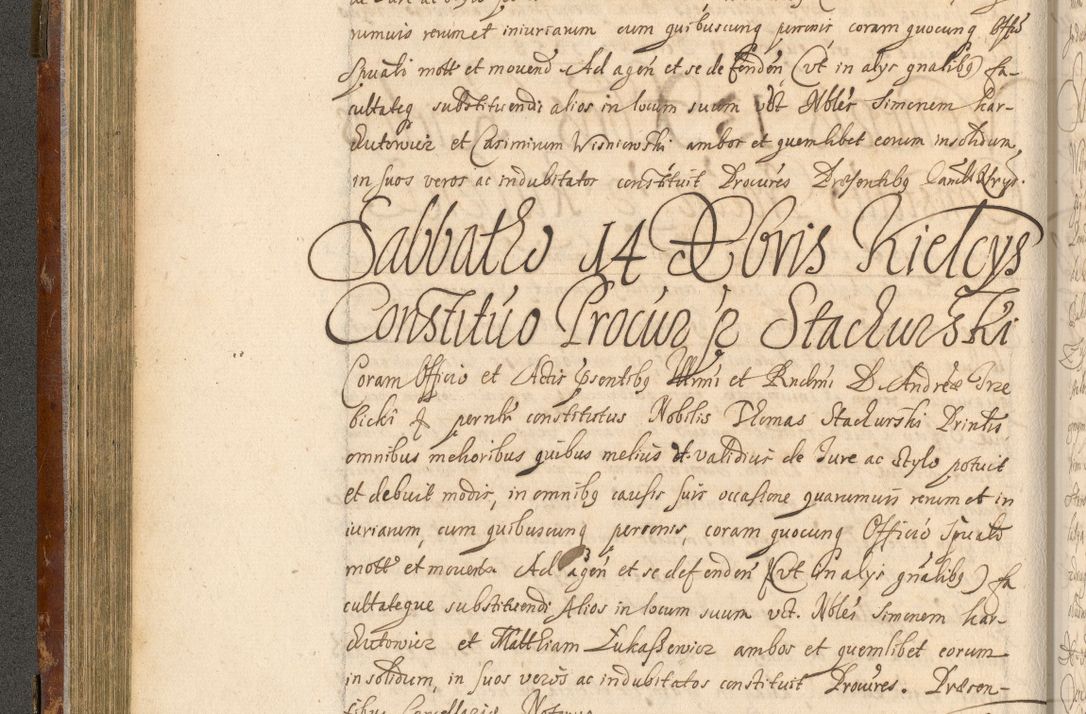 rumuis rerum et iniuriarum cum quibuscunq personis coram quocunq Offio
Spuali mott et movend Ad agen et se defenden (vt in alys gnalibq) fa-
cultateq substituendi alios in locum suum vct Nbles Simonem kar-
chutowicz et Casimirum Wisniewski ambos et quemlibet eorum insolidum,
in suos veros ac indubitatos constituit Procures Presentibq
Sabbatho 14 Xbris Kielcys
Constitúo Procur p Stachurski
Coram Officio et Actis psentibq Illmi et Rndmi D. Andreæ Trze
bicki & pernlr constitutus Nobilis Thomas Stachurski Printis
omnibus melioribus quibus melius et validius de Jure ac Stylo potuit
et debuit modis, in omnibq causis suis occasione quarumuis rerum et in
iuriarum, cum quibuscunq personis coram quocunq Officio Spuali
mott et movend Ad agen et se defenden (vt in alys gnalibq) fa
cultateque substituendi Alios in locum suum vct. Nbles Simonem kar-
chutowicz et Matthiam Lukaszewicz ambos et quemlibet eorum
in solidum, in suos veros ac indubitatos constituit Procures. Præsen-
tibus Cancellariæ Notario